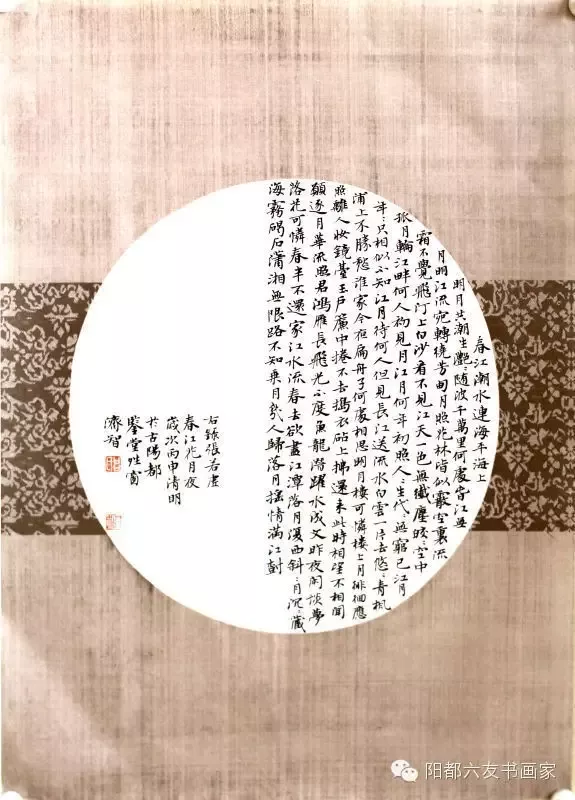 春江潮水連海平海上
明月共潮生灧〻隨波千萬里何處春江無
月明江流宛轉繞芳甸月照花林皆似霰空裏流
霜不覺飛汀上白沙看不見江天一色無纖塵皎〻空中
孤月輪江畔何人初見月江月何年初照人〻生代〻無窮已江月
年〻只相似不知江月待何人但見長江送流水白雲一片去悠〻青楓
浦上不勝愁誰家今夜扁舟子何處相思明月樓可憐樓上月徘徊應
照離人妝鏡臺玉戶簾中捲不去搗衣砧上拂還來此時相望不相聞
願逐月華流照君鴻雁長飛光不度魚龍潛躍水成文昨夜閑潭夢
落花可憐春半不還家江水流春去欲盡江潭落月復西斜〻月沉〻藏
海霧碣石瀟湘無限路不知乘月幾人歸落月搖情滿江樹
右錄張若虛
春江花月夜
歲次丙申清明
於古陽都
鑒堂北窗
濟智
阳都六友书画家